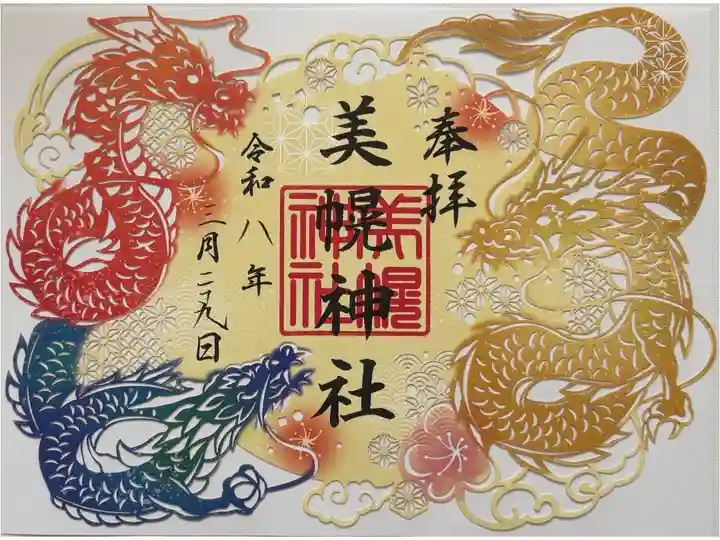 奉拝
美幌神社
美幌
神社
令和八年
二月二九日